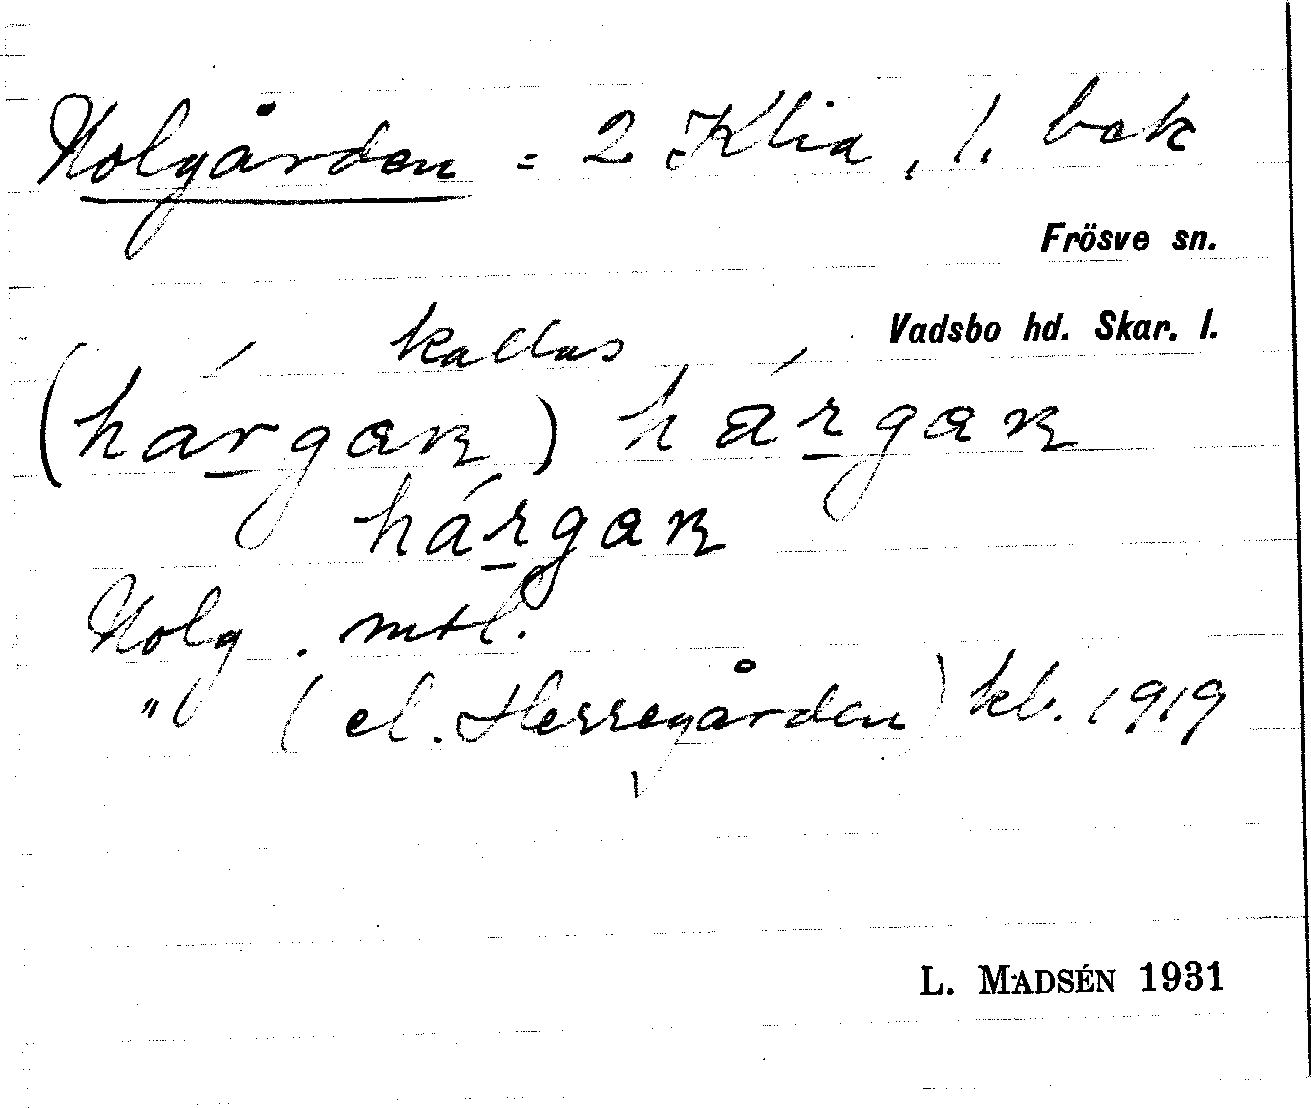 Nolgården = 2 Klia, 1. bok
Frösve sn.
Vadsbo hd. Skar. l.
kallas
(hárgaɴ) hárgaɴ
hárgaɴ
Nolg. mtl.
" (el. Herregården) kb. 1919
L. MADSÉN 1931